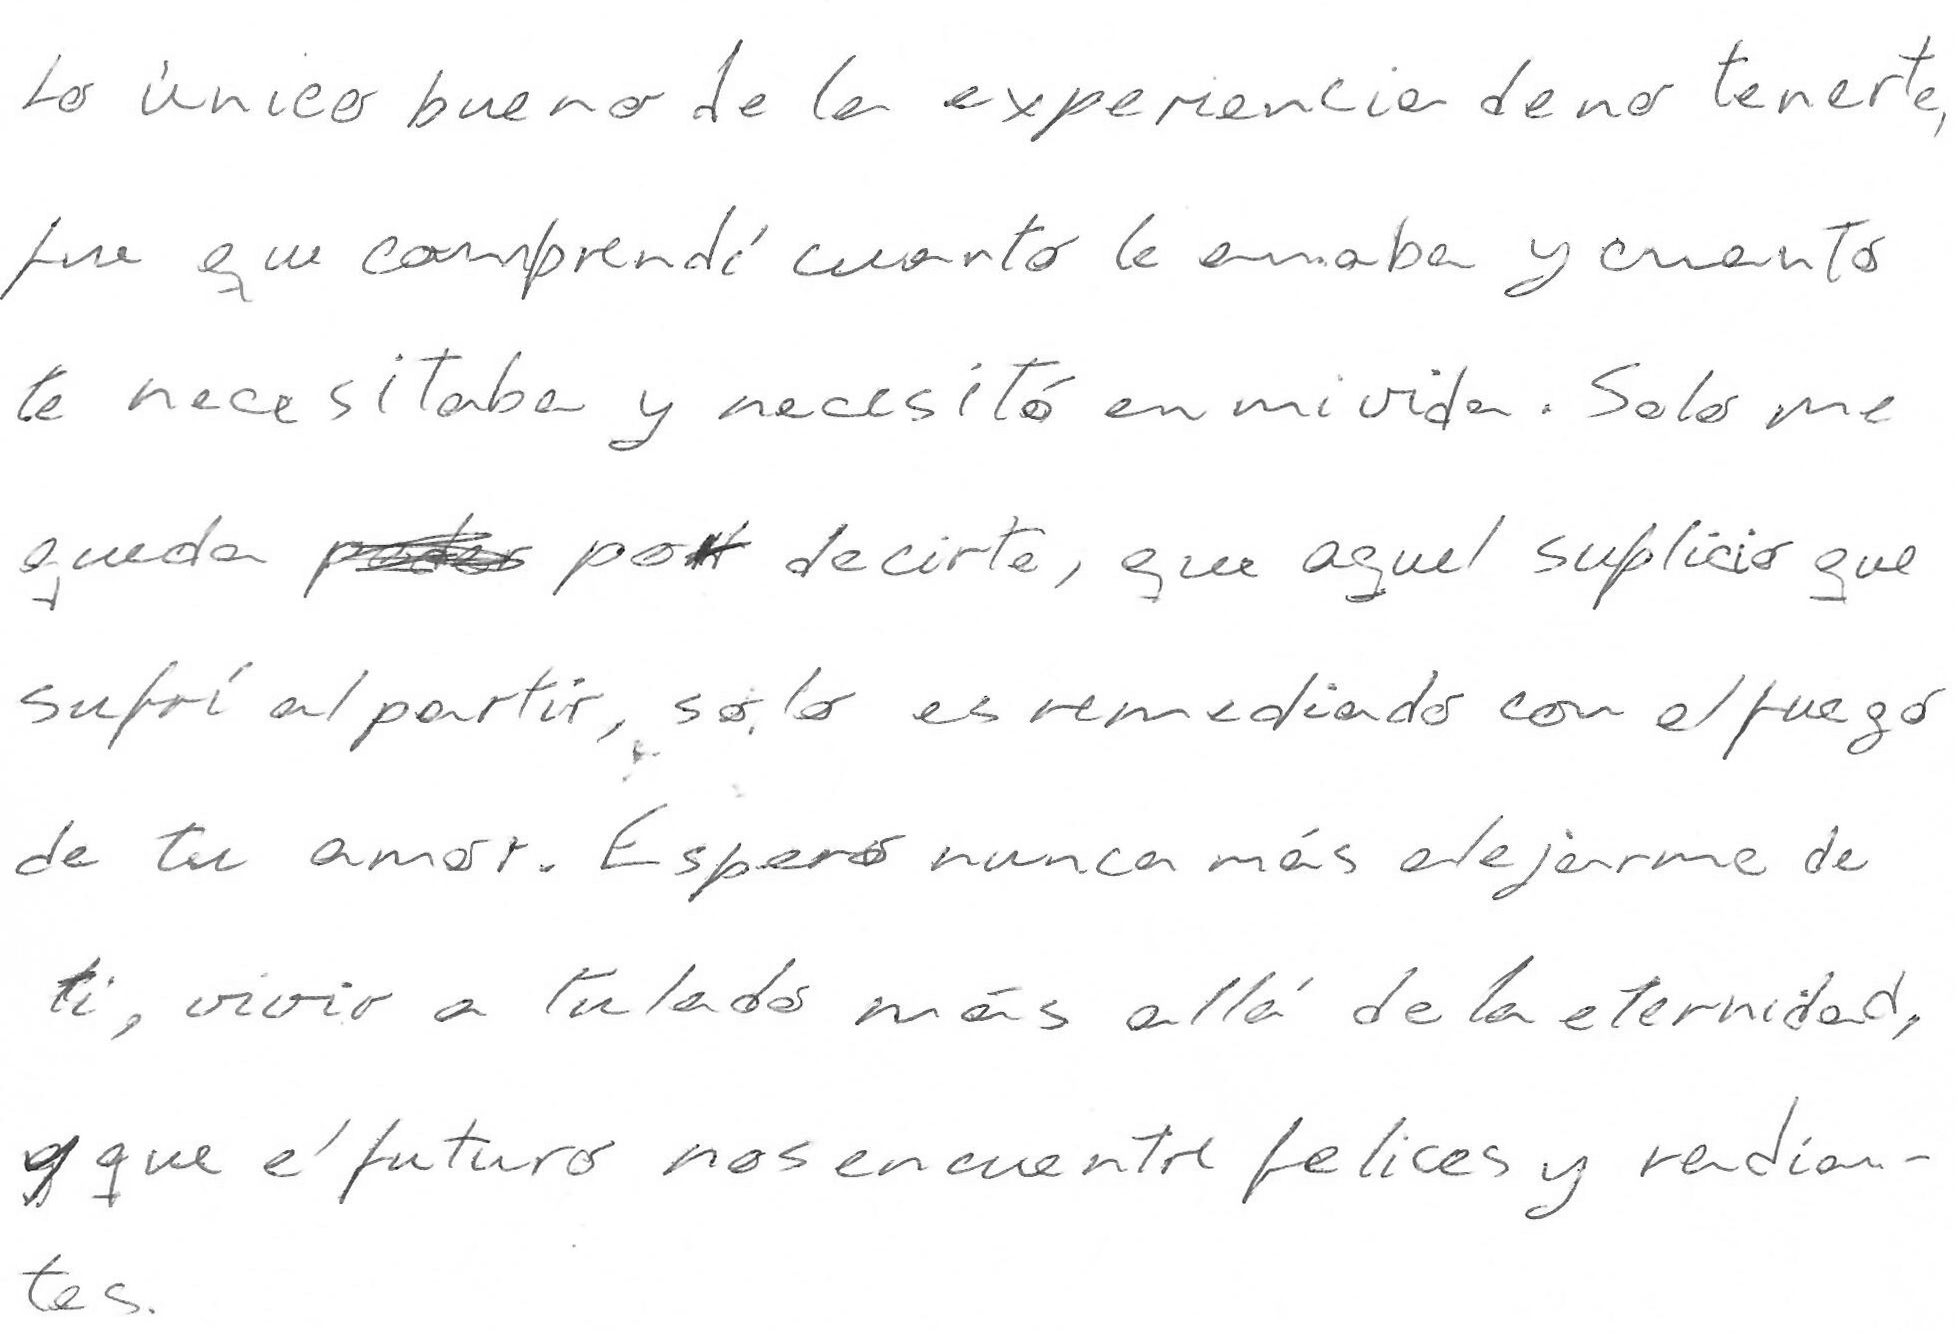 Lo único bueno de la experiencia de no tenerte,
fue que comprendí cuanto te amaba y cuanto
te necesitaba y necesitó en mi vida. Solo me
queda por decirte, que aquel suplicio que
sufrí al partir, solo es remediado con el fuego
de tu amor. Espero nunca más alejarme de
ti, vivir a tu lado más allá de la eternidad,
y que el futuro nos encuentre felices y radian-
tes.